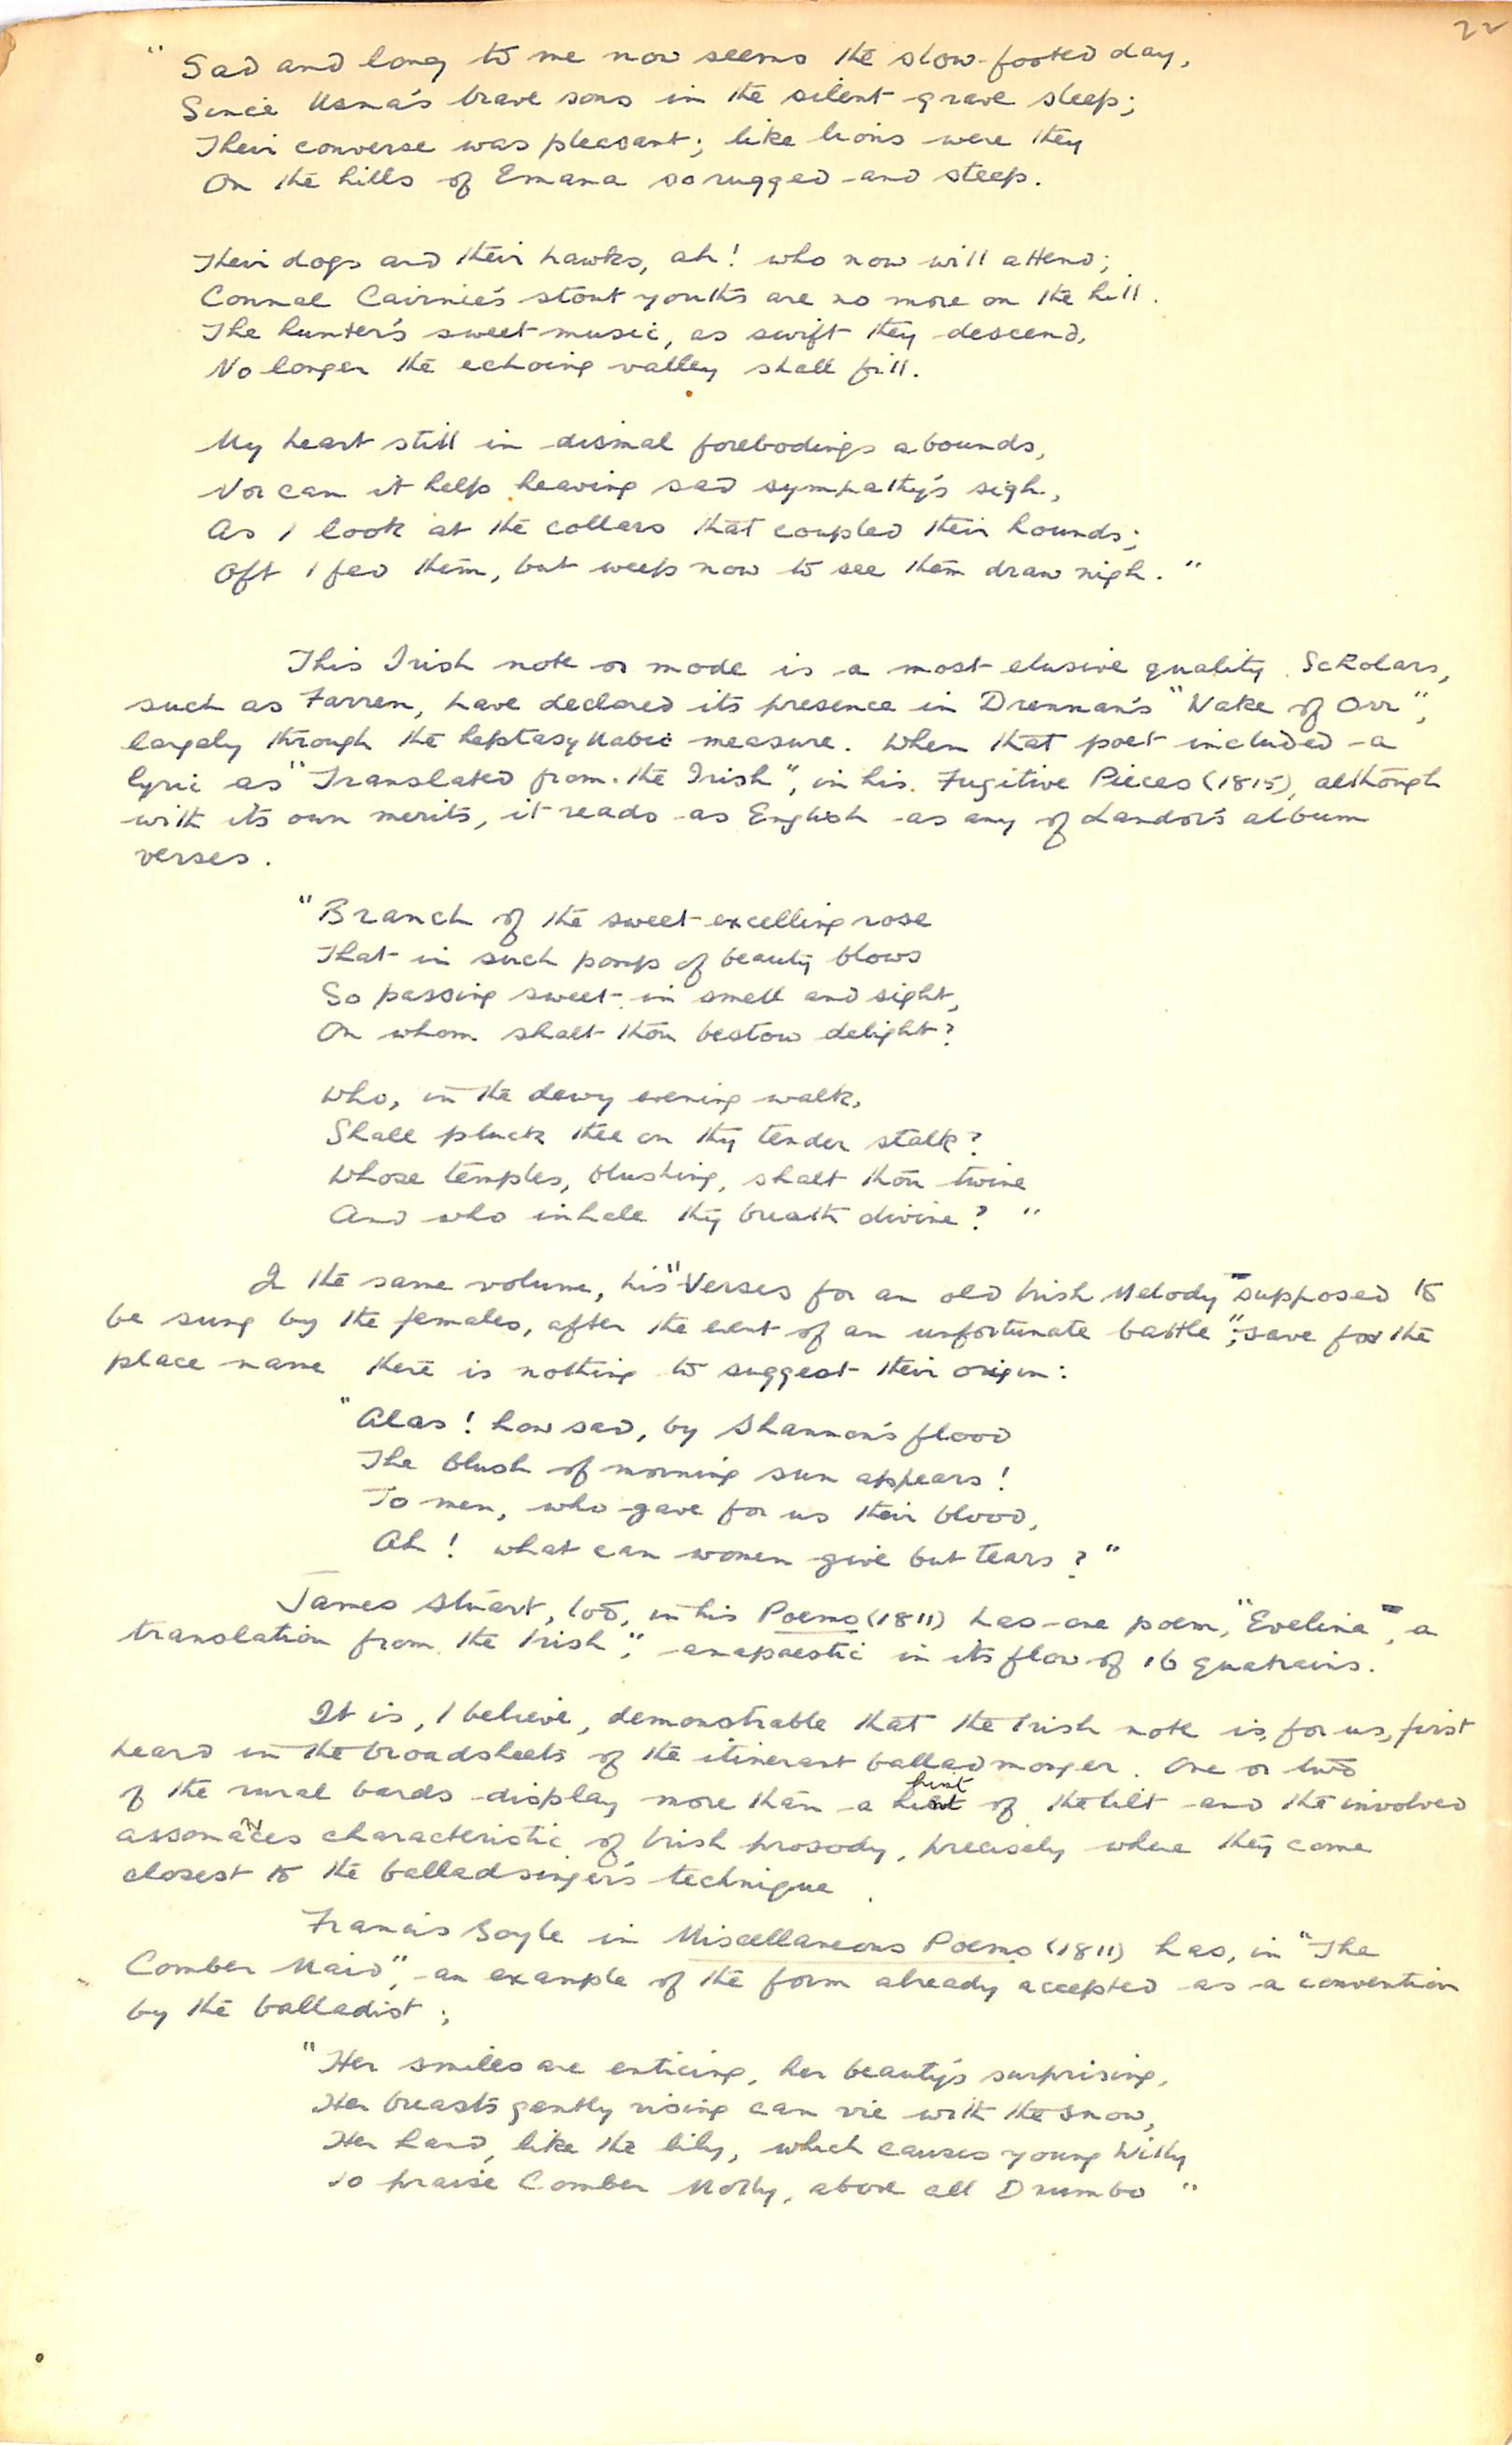 22
" Sad and long to me now seems the slow-footed day,
Since Usna's brave sons in the silent grave sleep;
Their converse was pleasant; like lions were they
On the hills of Emana so rugged and steep.
Their dogs and their hawks, ah! who now will attend;
Connal Cairnie's stout youths are no more on the hill.
The hunter's sweet music, as swift they descend,
No longer the echoing valley shall fill.
My heart still in dismal forebodings abounds,
Nor can it help heaving sad sympathy's sigh,
As I look at the collars that coupled their hounds;
Oft I fed them, but weep now to see them draw nigh. "
This Irish note or mode is a most elusive quality. Scholars,
such as Farren, have declared its presence in Drennan's "Wake of Orr",
largely through the heptasyllabic measure. When that poet included a
lyric as "Translated from the Irish", in his Fugitive Pieces (1815), although
with its own merits, it reads as English as any of Landor's album
verses.
"Branch of the sweet excelling rose
That in such pomp of beauty blows
So passing sweet in smell and sight,
On whom shalt thou bestow delight?
Who, in the dewy evening walk,
Shall pluck thee on thy tender stalk?
Whose temples, blushing, shalt thou twine
And who inhale thy breath divine? "
In the same volume, his "Verses for an old Irish Melody supposed to
be sung by the females, after the event of an unfortunate battle"; save for the
place name there is nothing to suggest their origin:
"Alas! how sad, by Shannon's flood
The blush of morning sun appears!
To men, who gave for us their blood,
Ah! what can women give but tears?"
James Stuart, too, in his Poems (1811) has one poem, "Evelina", a
translation from the Irish", anapaestic in its flow of 16 quatrains.
It is, I believe, demonstrable that the Irish note is, for us, first
heard in the broadsheets of the itinerant balladmonger. One or two
of the rural bards display more than a hint of the lilt and the involved
assonances characteristic of Irish prosody, precisely where they come
closest to the balladsinger's technique.
Francis Boyle in Miscellaneous Poems (1811) has, in "The
Comber Maid", an example of the form already accepted as a convention
by the balladist;
"Her smiles are enticing, her beauty's surprising,
Her breasts gently rising can vie with the snow,
Her hand, like the lily, which causes young Willy
To praise Comber Molly, above all Drumbo "